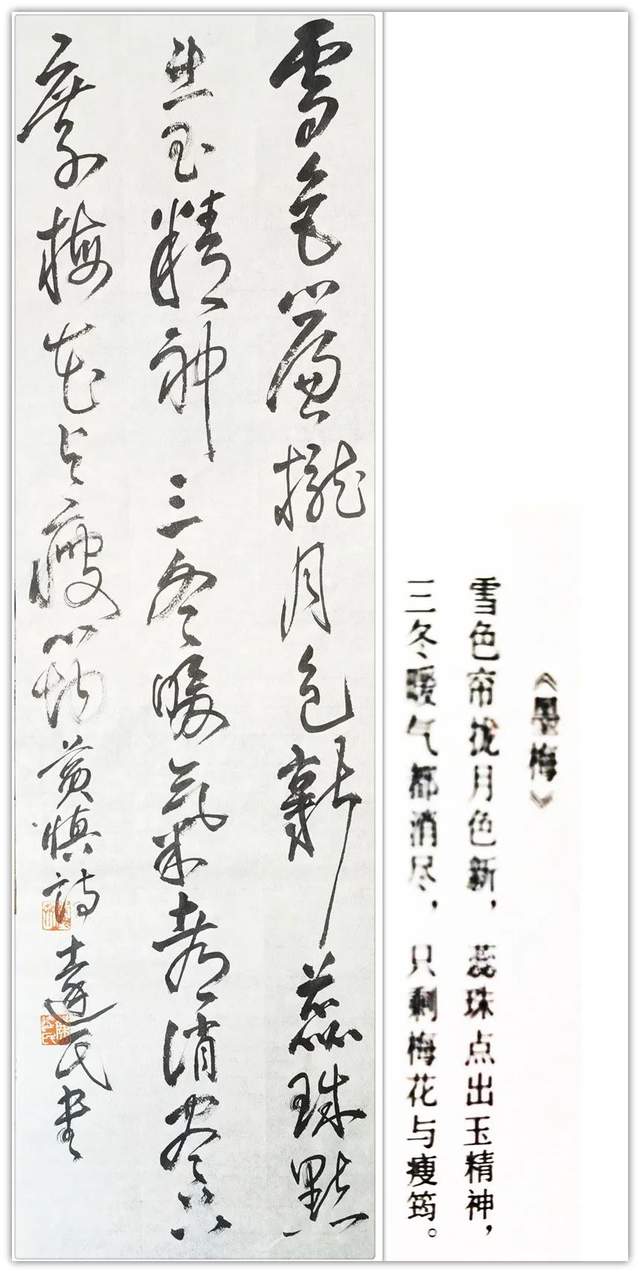 雪色簾攏月色新蕊珠點
出玉精神三冬暖氣都消盡只
剩梅花与瘦筠黄慎詩達民书
《墨梅》
雪色帘拢月色新，蕊珠点出玉精神，
三冬暖气都消尽，只剩梅花与瘦筠。